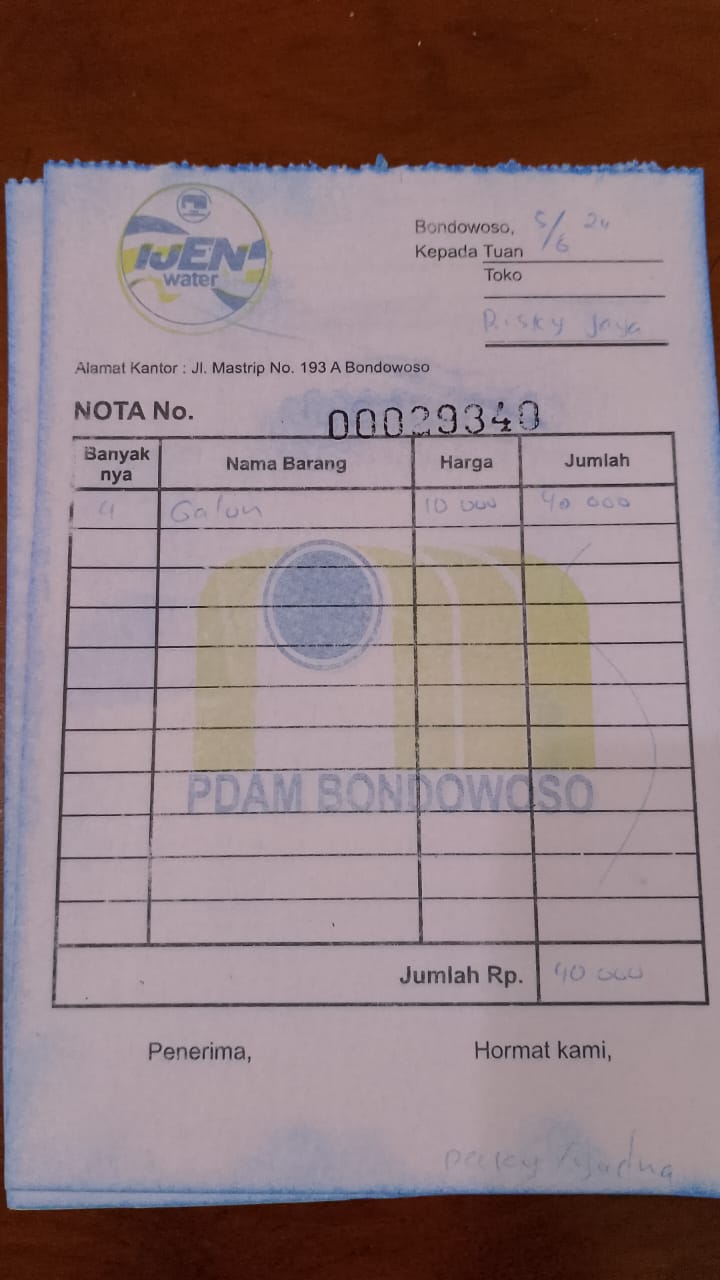 IJEN
water
Bondowoso, 5/6 24
Kepada Tuan
Toko
Risky Jaya
Alamat Kantor : Jl. Mastrip No. 193 A Bondowoso
NOTA No. 00029340
Banyak nya Nama Barang Harga Jumlah
4 Galon 10 000 40 000
PDAM BONDOWOSO
Jumlah Rp. 40 000
Penerima, Hormat kami,